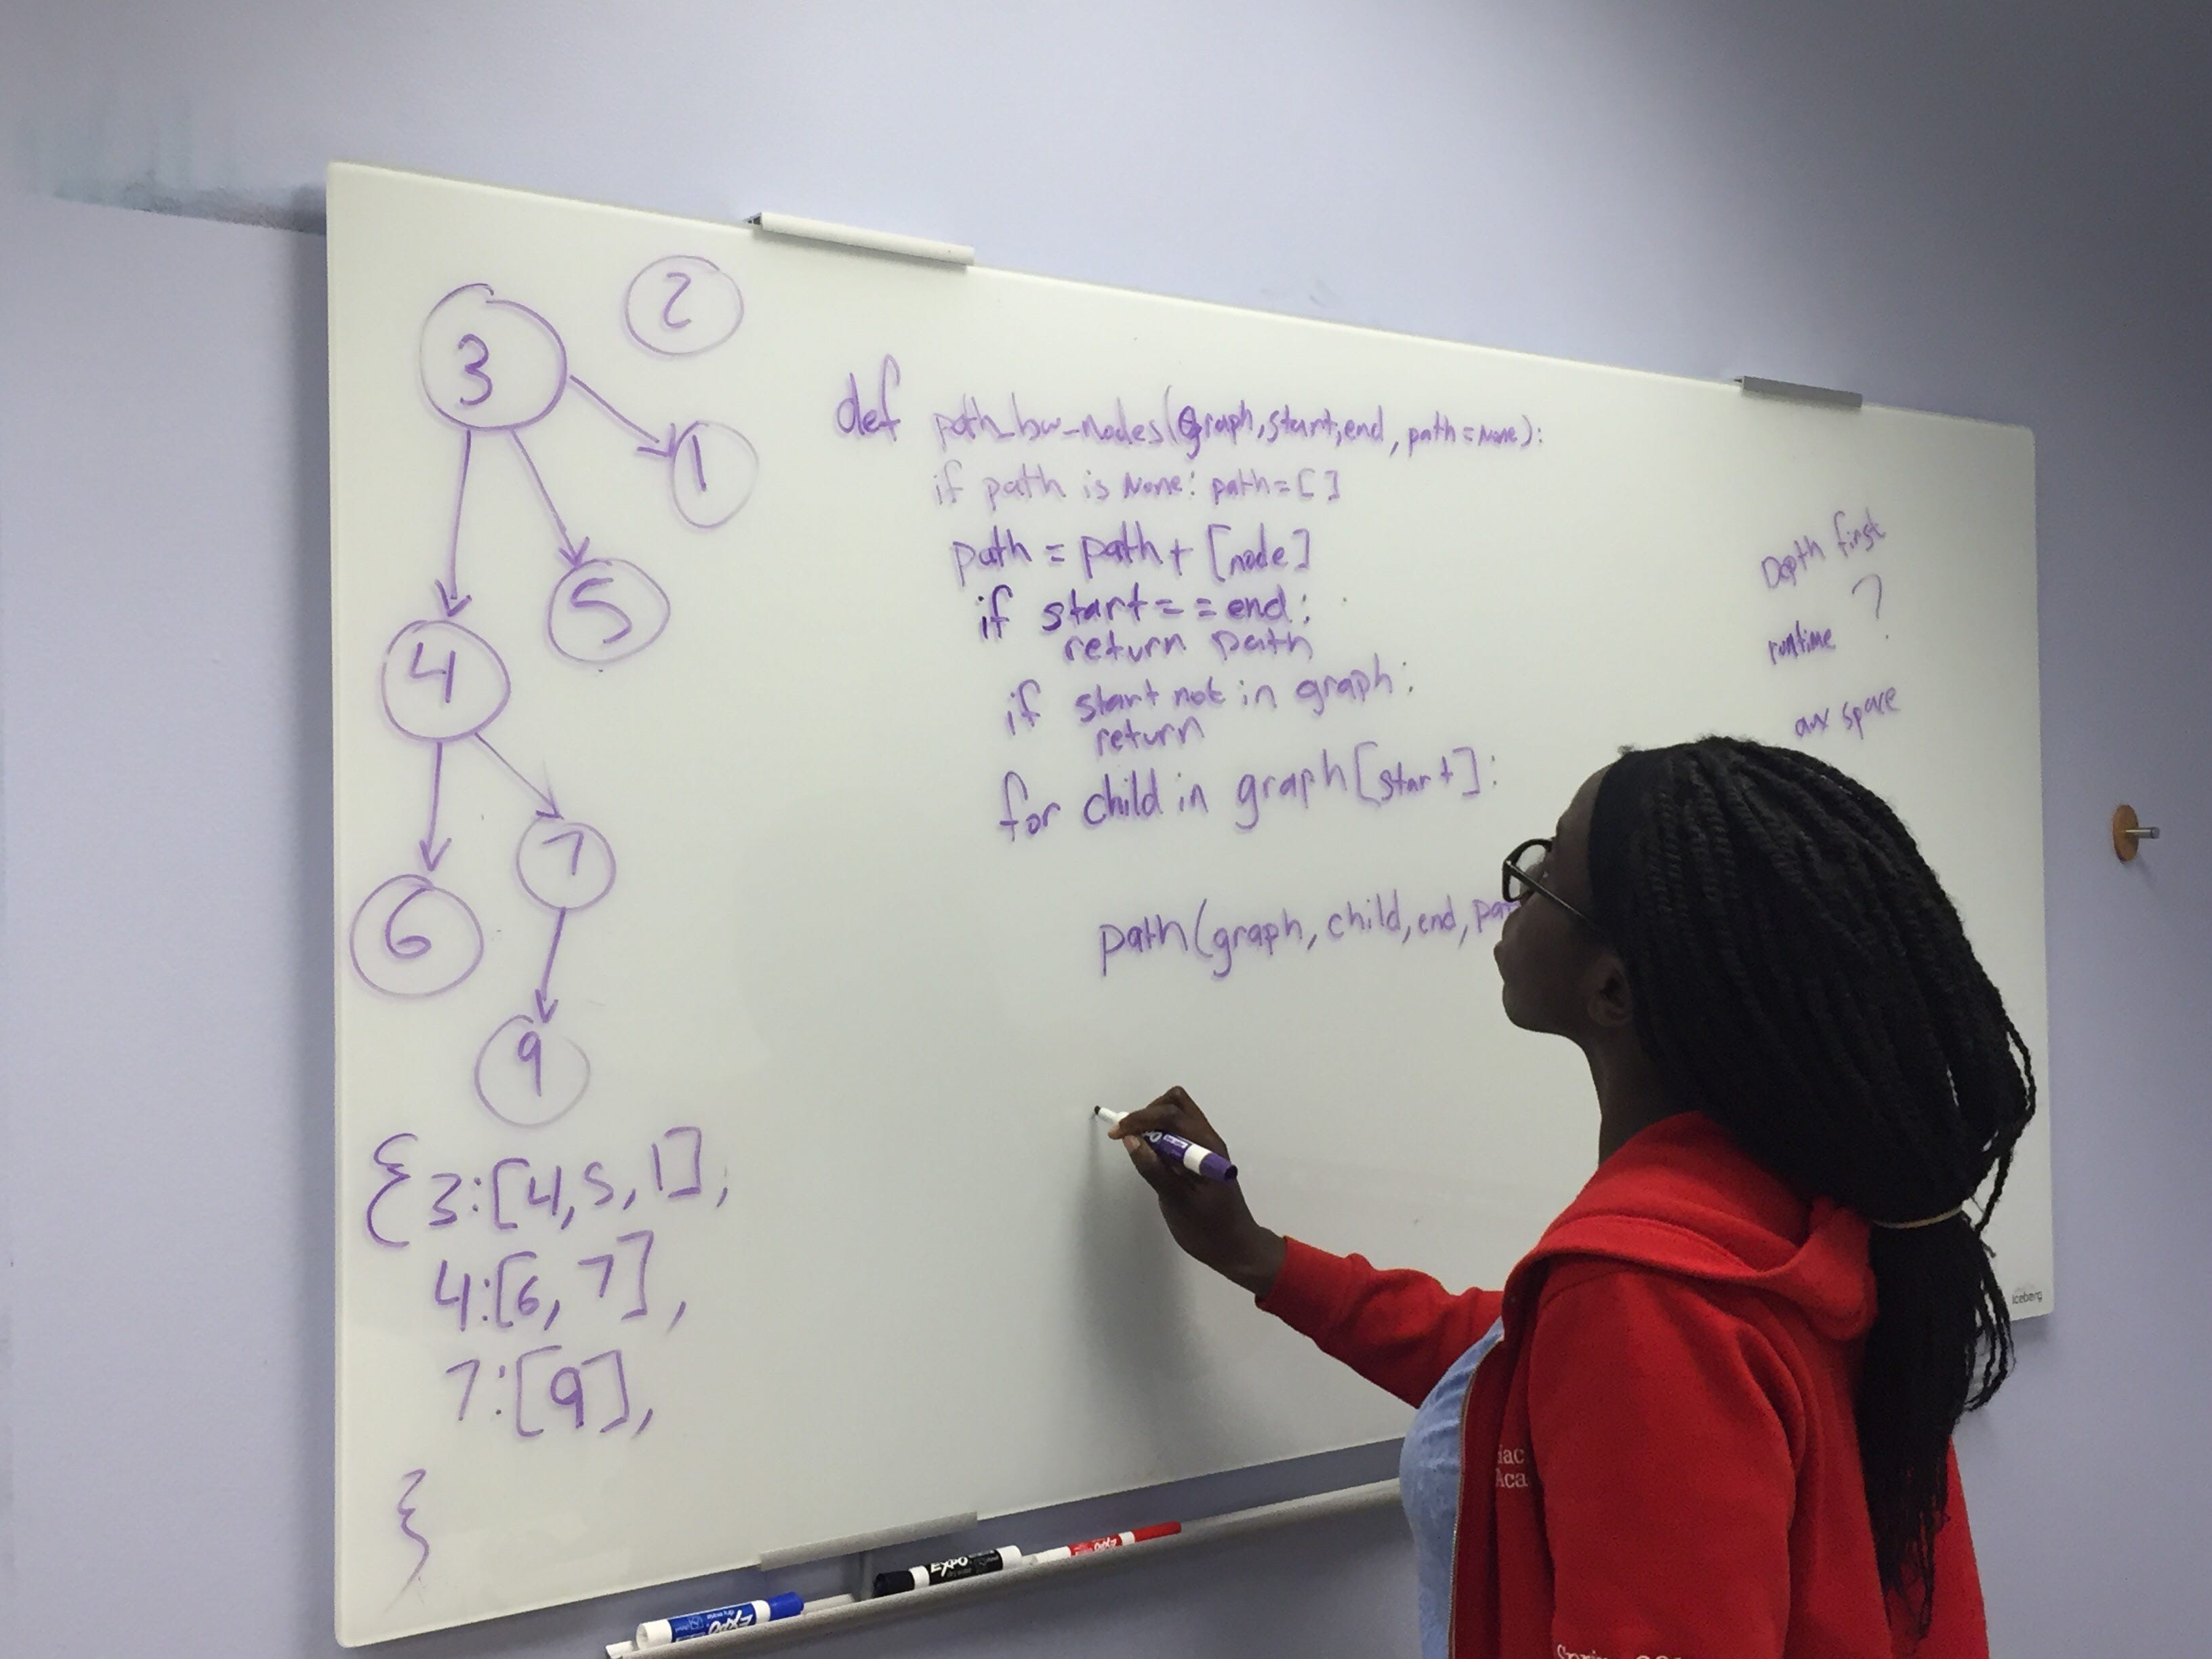 3
2
1
5
4
7
6
9
{3:[4,5,1],
4:[6,7],
7:[9],
}
def path_bw_nodes(graph,start,end, path=None):
if path is None: path=[]
path = path + [node]
if start==end:
return path
if start not in graph:
return
for child in graph[start]:
path(graph, child, end,
Depth first
?
runtime
aux space
EXPO
EXPO
EXPO
iceberg